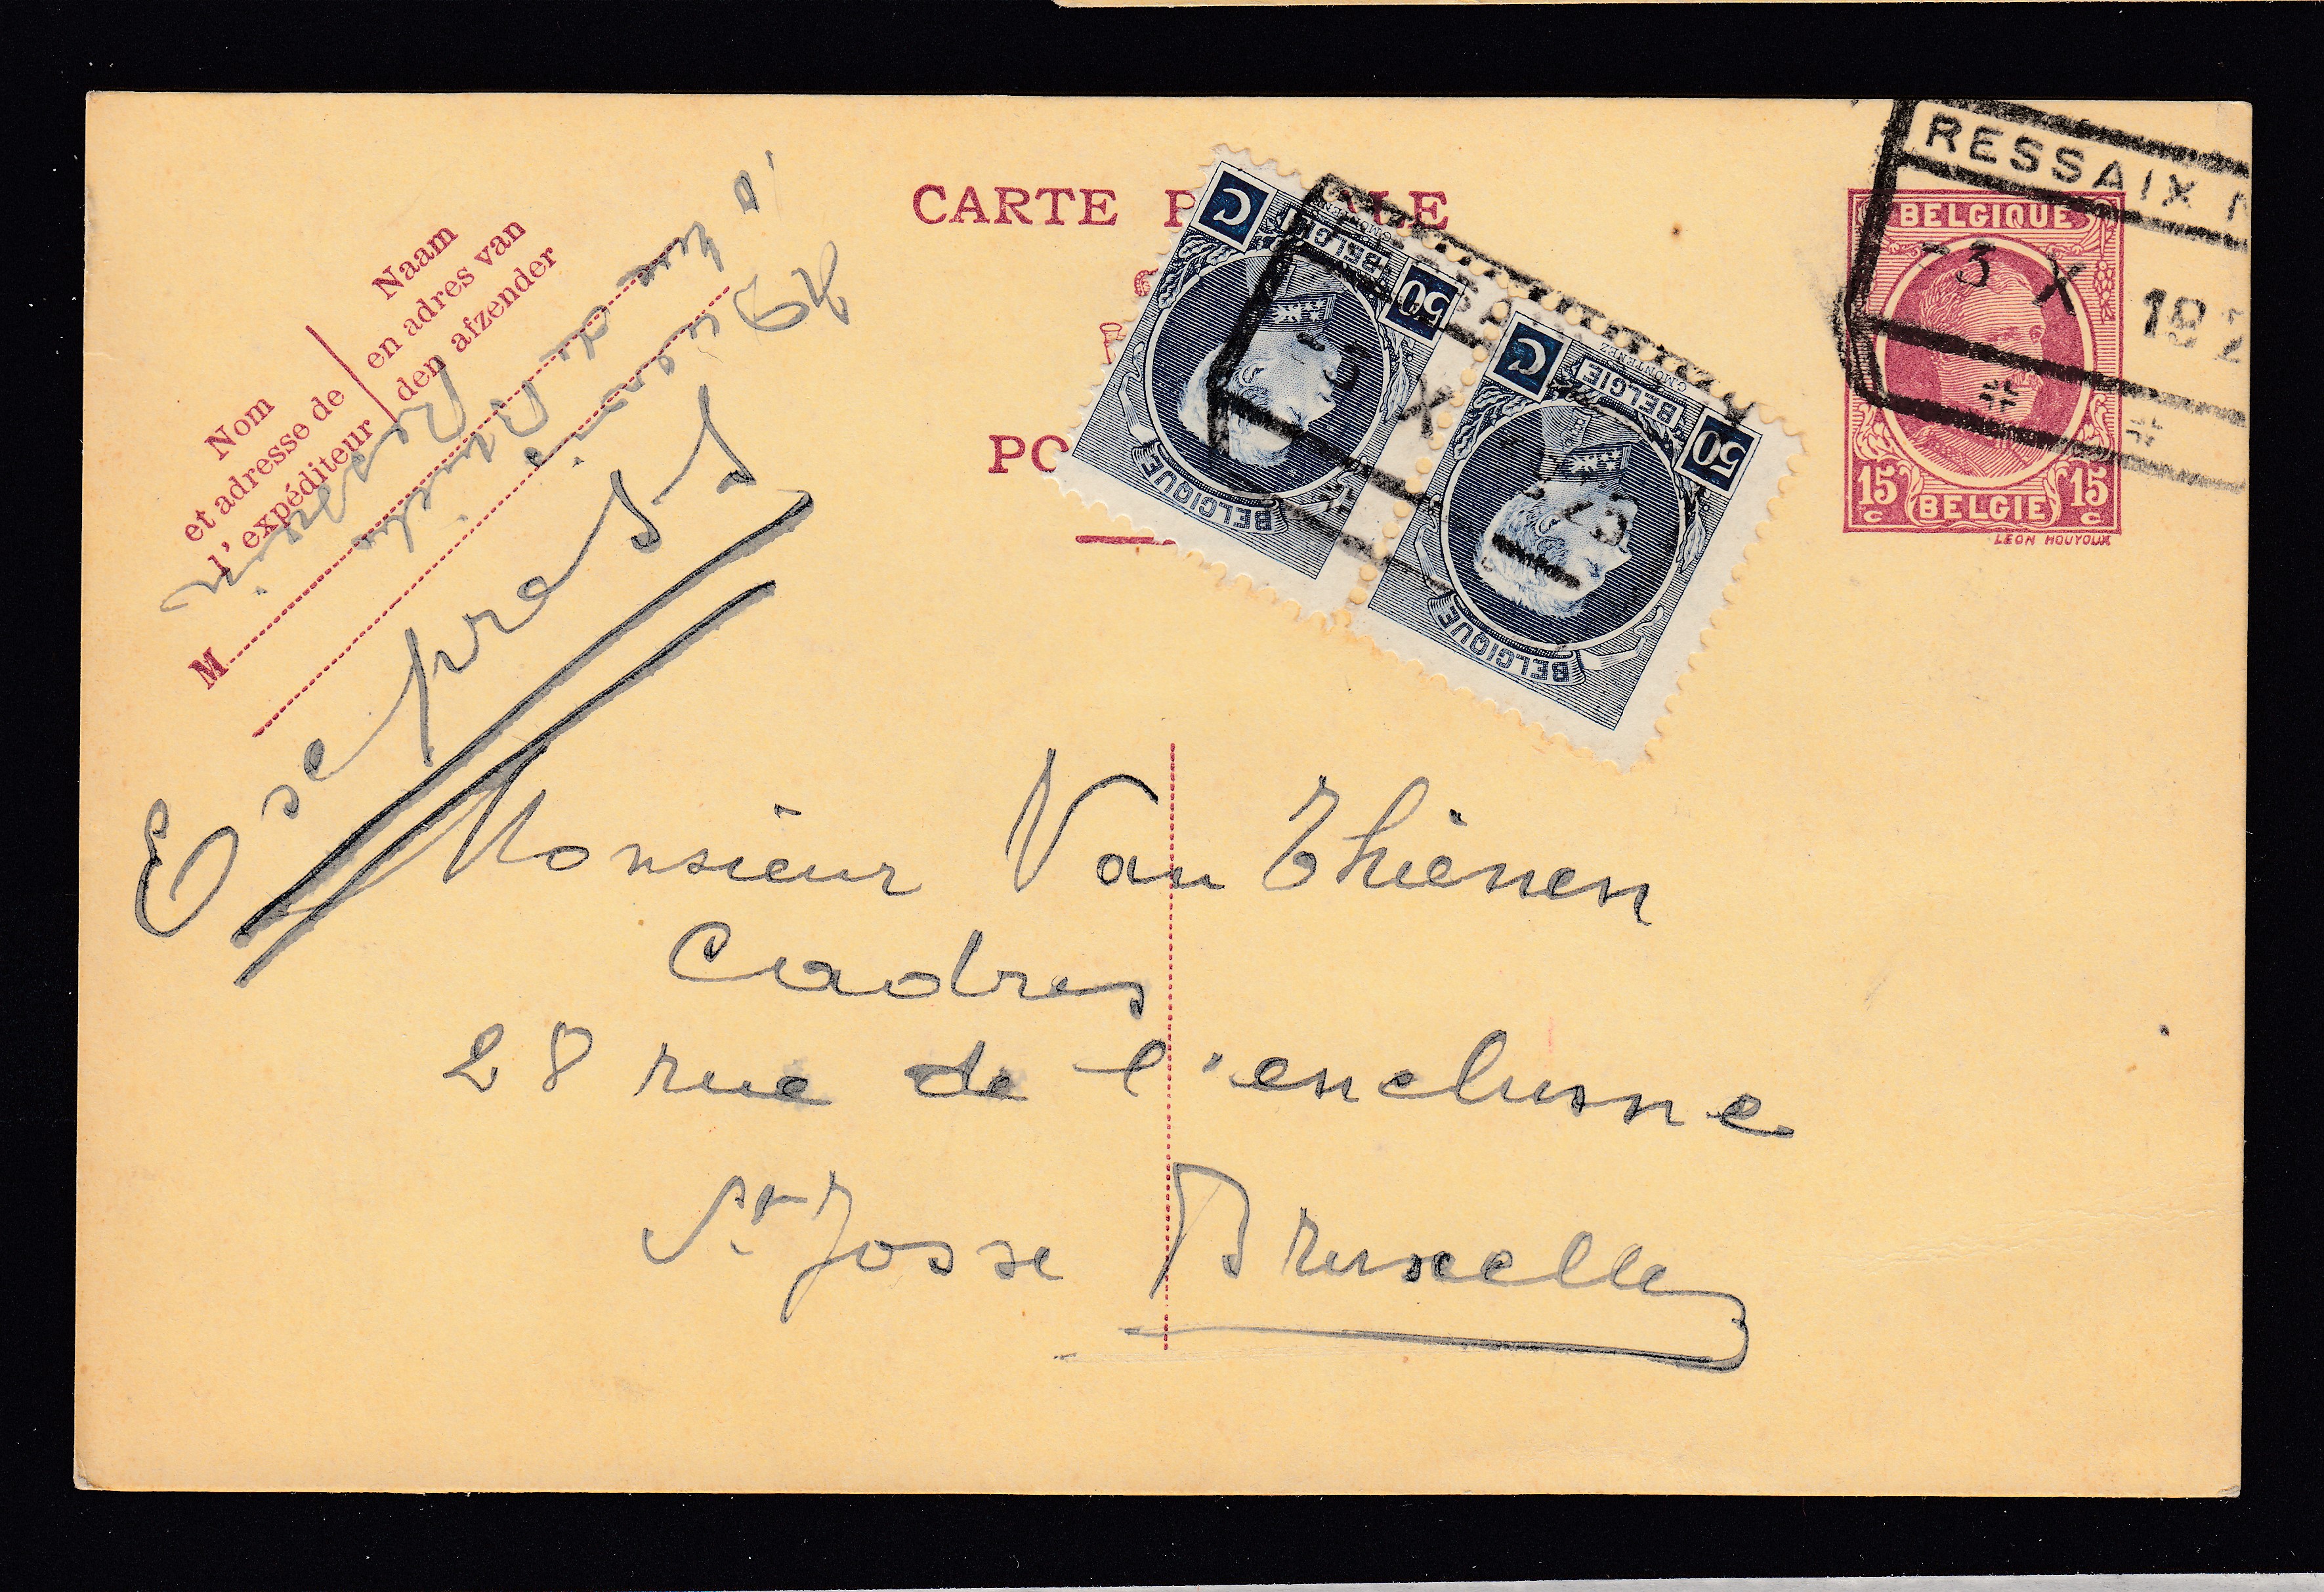 CARTE P
ALE
PO
Naam
en adres van
den afzender
Nom
et adresse de
l' expéditeur
M
Express
RESSAIX
-3 X 192
BELGIQUE
15 c BELGIE 15 c
LEON HOUYOUX
50 C
BELGIE
G.MONTENEZ
BELGIQUE
50 C
BELGIE
G.MONTENEZ
BELGIQUE
-3 X 1923
Monsieur Van Thienen
Cadres
28 rue de l'enclusne
St Josse Bruxelles